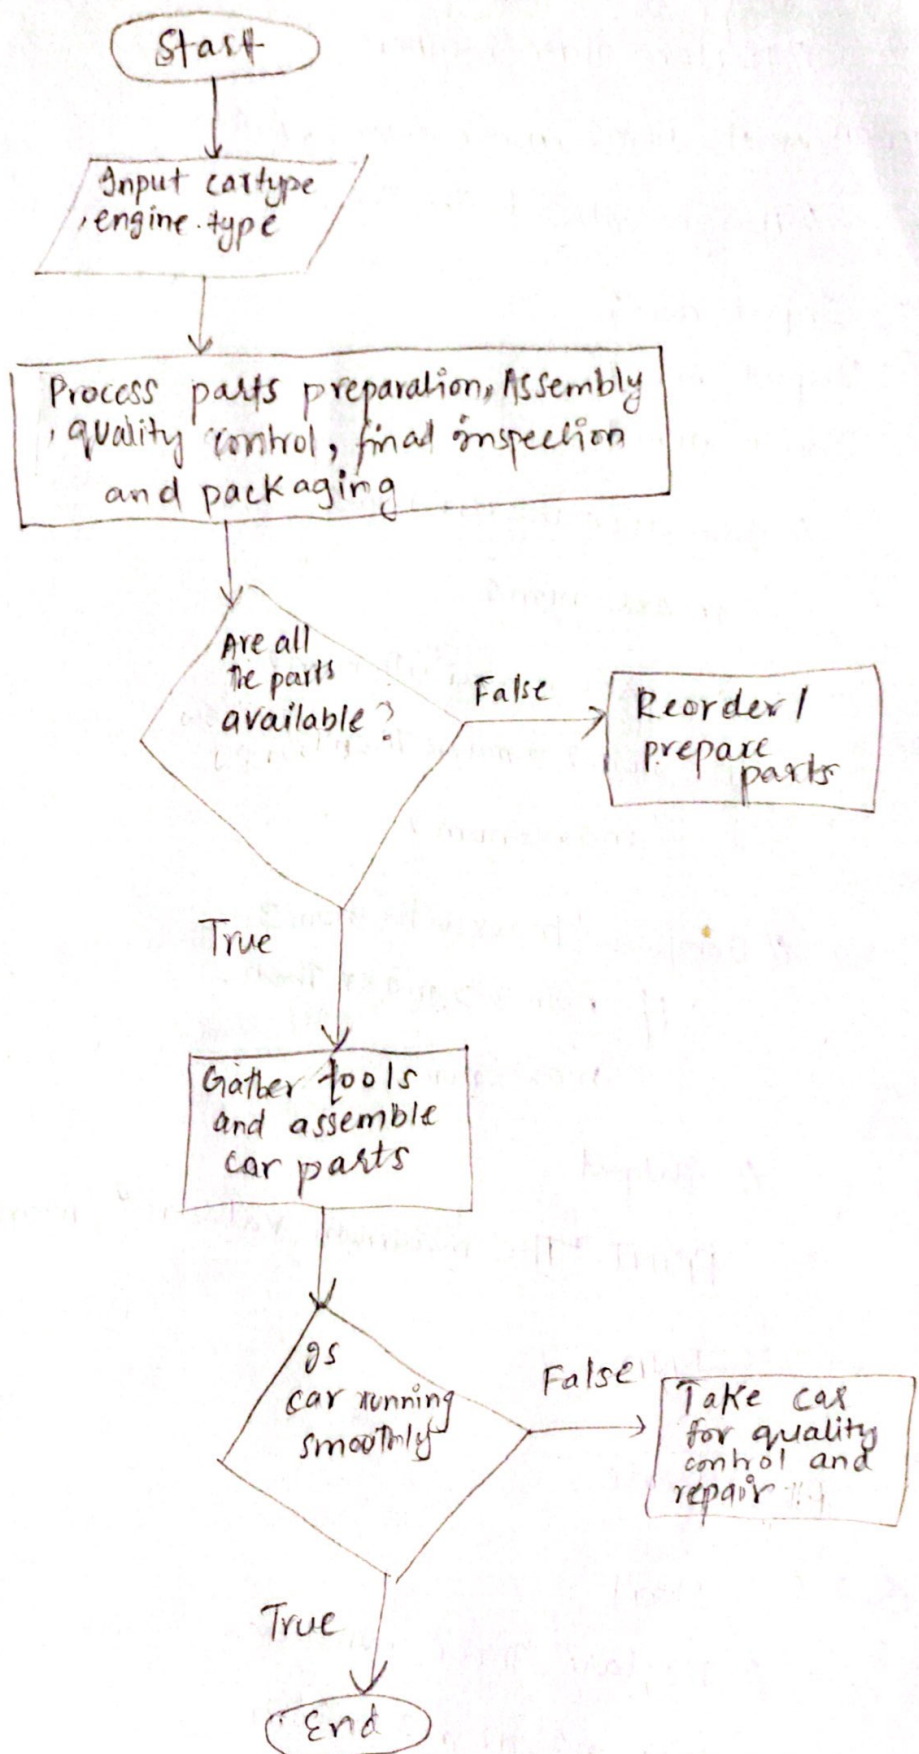 Start
Input cartype
, engine.type
Process parts preparation, Assembly
, quality control, final inspection
and packaging
Are all
the parts
available?
False
Reorder /
prepare
parts
True
Gather tools
and assemble
car parts
Is
car running
smoothly
False
Take car
for quality
control and
repair
True
End